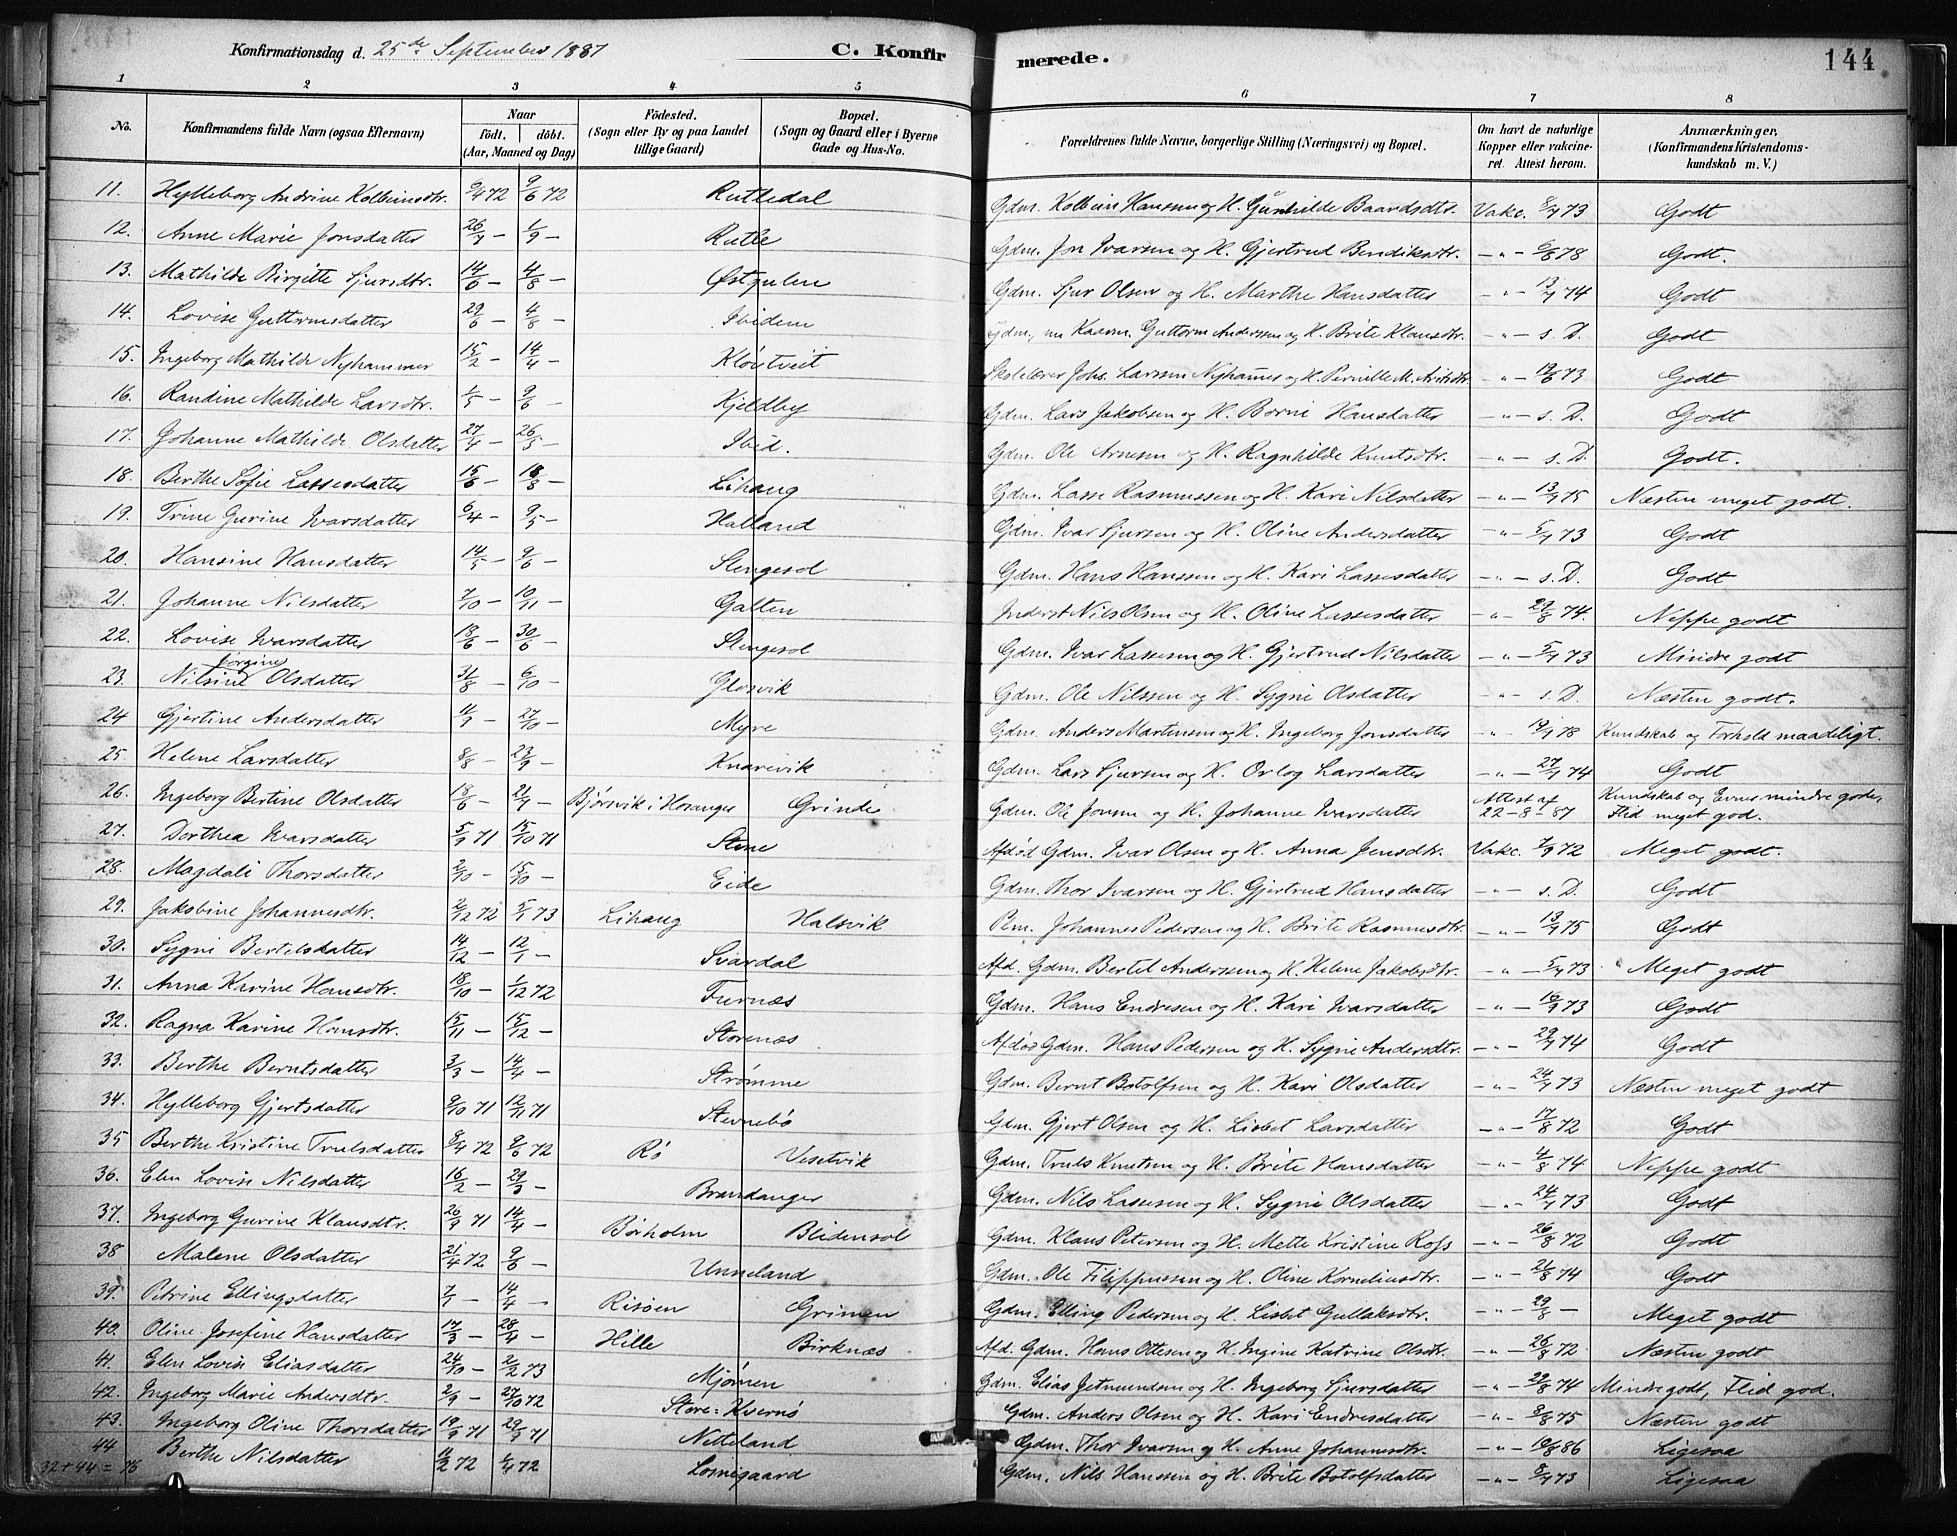 Konfirmationsdag d. 25de September 1887 C. Konfirmerede. 144
1 2 3 4 5 6 7 8
No. Konfirmandens fulde Navn (ogsaa Efternavn) Naar födt. döbt. (Aar, Maaned og Dag) Födested. (Sogn eller By og paa Landet tillige Gaard) Bopæl. (Sogn og Gaard eller i Byerne Gade og Hus-No. Forældrenes fulde Navne, borgerlige Stilling (Næringsvei) og Bopæl. Om havt de naturlige Kopper eller vakcineret. Attest herom. Anmærkninger, (Konfirmandens Kristendomskundskab m. V.)
11. Hylleborg Andrine Kolbeinsdtr. 6/4 72 9/6 72 Rutledal Gdm. Kolbein Hanssen og H. Gunhilde Baardsdtr. Vakc. 8/7 73 Godt
12. Anne Marie Jonsdatter 26/7 — 1/9 — Rutle Gdm. Jon Ivarsen og H. Gjertrud Bendiksdtr. -"- 6/8 78 Godt.
13. Mathilde Birgitte Sjursdtr. 14/6 — 4/8 — Østgulen Gdm. Sjur Olsen og H. Marthe Hansdatter -"- 13/7 74 Godt
14. Lovise Guttormsdatter 29/6 — 4/8 — Ibidem Gdm, nu Kaarm. Guttorm Andersen og H. Brite Klausdtr. -"- s. D. Godt
15. Ingeborg Mathilde Nyhammer 15/2 — 14/4 — Kløvtveit Skolelærer Johs. Larssen Nyhamer og H. Pernille M. -"- 19/6 73 Godt
16. Randine Mathilde Larsdtr. 1/5 — 9/6 — Kjeldby Gdm. Lars Jakobsen og H. Børni Hansdatter -"- s. D. Godt
17. Johanne Mathilde Olsdatter 27/4 — 26/5 — Ibid. Gdm. Ole Arnesen og H. Ragnhilde Knutsdtr. -"- s. D. Godt.
18. Berthe Sofie Lassesdatter 15/6 — 18/8 — Lihaug Gdm. Lasse Rasmussen og H. Kari Nilsdatter -"- 13/9 75 Næsten meget godt.
19. Trine Gurine Ivarsdatter 6/4 — 9/5 — Halland Gdm. Ivar Sjursen og H. Oline Andersdatter -"- 5/7 73 Godt
20. Hansine Hansdatter 14/5 — 9/6 — Slengesol Gdm. Hans Hanssen og H. Kari Lassesdatter -"- s. D. Godt
21. Johanne Nilsdatter 7/10 — 10/11 — Galten Inderst Nils Olsen og H. Oline Lassesdatter -"- 29/8 74. Neppe godt
22. Lovise Ivarsdatter 18/6 — 30/6 — Slengesol Gdm. Ivar Lassesen og H. Gjertrud Nilsdatter -"- 5/7 73 Mindre godt
23. Nilsine Børgine Olsdatter 31/8 — 6/10 — Glosvik Gdm. Ole Nilssen og H. Sygni Olsdatter -"- s. D. Næsten godt.
24 Gjertine Andersdatter 11/9 — 27/10 — Myre Gdm. Anders Martensen og H. Ingeborg Jonsdatter -"- 19/9 78 Kundskab og Forhold maadeligt.
25. Helene Larsdatter 8/8 — 23/9 — Knarevik Gdm. Lars Sjursen og H. Orlog Larsdatter -"- 27/7 74 Godt
26. Ingeborg Bertine Olsdatter 18/6 — 21/7 — Bjørsvik i Hosanger Grinde Gdm. Ole Jonsen og H. Johanne Ivarsdatter Attest af 22-8-87 Kundskab og Evner mindre gode, Flid meget god.
27. Dorthea Ivarsdatter 5/9 71 15/10 71 Stene Afdød Gdm. Ivar Olsen og H. Anna Jensdtr. Vakc. 7/9 72 Meget godt.
28. Magdali Thorsdatter 2/10 — 15/10 — Eide Gdm. Thor Ivarsen og H. Gjertrud Hansdatter -"- s. D. Godt
29. Jakobine Johannesdtr. 2/12 72 5/1 73 Lihaug Halsvik Pm. Johannes Pedersen og H. Brite Rasmusdtr. -"- 13/9 75 Godt
30. Sygni Bertelsdatter 14/12 — 12/1 — Svardal Afd. Gdm. Bertel Andersen og H. Helene Jakobsdtr. -"- 5/7 73 Meget godt
31. Anna Karine Hansdtr. 18/10 — 1/12 72 Furnæs Gdm. Hans Endresen og H. Kari Ivarsdatter -"- 16/9 73 Godt
32. Ragna Karine Hansdtr. 15/11 — 15/12 — Storenæs Afdød Gdm. Hans Pedersen og H. Sygni Andersdtr. -"- 29/7 74 Godt
33. Berthe Berntsdatter 3/3 — 14/4 — Strømme Gdm. Bernt Botolfsen og H. Kari Olsdatter -"- 24/7 73 Næsten meget godt
34. Hylleborg Gjertsdatter 9/10 71 12/11 71 Stevnebø Gdm. Gjert Olsen og H. Lisbet Larsdatter -"- 17/8 72 Godt
35 Berthe Kristine Trulsdatter 8/4 72 9/6 72 Rø Visetvik Gdm. Truls Knutsen og H. Brite Hansdatter -"- 4/8 74 Neppe godt
36. Elen Lovise Nilsdatter 16/2 — 29/3 — Brandanger Gdm. Nils Lassesen og H. Sygni Olsdatter -"- 24/7 73 Godt
37. Ingeborg Gurine Klausdtr. 26/9 71 14/4 — Børholm Blidensol Gdm. Klaus Petersen og H. Mette Kristine Rofs -"- 26/8 72 Godt
38 Malene Olsdatter 21/4 72 9/6 — Unneland Gdm. Ole Filippussen og H. Oline Korneliusdtr. -"- 21/8 74 Godt
39. Petrine Ellingsdatter 7/1 — 14/4 — Risøen Grimen Gdm. Elling Pedersen og H. Lisbet Gullaksdtr. -"- 29/8 — Meget godt
40. Oline Josefine Hansdatter 17/3 — 28/4 — Hille Birknæs Afd. Gdm. Hans Ottesen og H. Ingine Katrine Olsdtr. -"- 26/8 72 Næsten godt
41. Elen Lovise Eliasdatter 24/10 — 2/2 73 Mjømen Gdm. Elias Jetmundsen og H. Ingeborg Sjursdatter -"- 22/8 74 Mindre godt, Flid god.
42. Ingeborg Marie Andersdtr. 2/9 — 27/10 72 Store-Kvernø Gdm. Anders Olsen og H. Kari Endresdatter -"- 8/8 75 Næsten godt
43. Ingeborg Oline Thorsdatter 19/9 71 29/9 71 Netteland Gdm. Thor Ivarsen og H. Anne Johannesdtr. -"- 10/8 86 Ligesaa
44 Berthe Nilsdatter 11/2 72 1/4 72 Losnegaard Gdm. Nils Hanssen og H. Brite Botolfsdatter -"- 8/7 73 Ligesaa
32+44=76